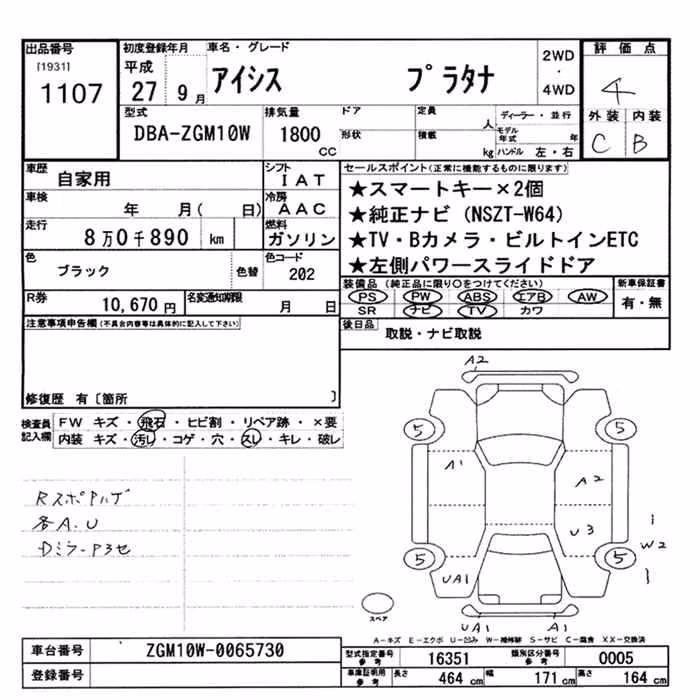 出品番号 初度登録年月 車名・グレード 2WD・4WD 評価点
[1931]
1107 平成 27 9月 アイシス プラタナ 4
型式 排気量 ドア 定員 人 ディーラー・並行 外装 内装
DBA-ZGM10W 1800 CC 形状 積載 kg モデル年式 年 C B
ハンドル 左・右
車歴 自家用 シフト IAT セールスポイント(正常に機能するものに限ります)
車検 年 月( 日) 冷房 AAC ★スマートキー×2個
走行 8万0千890 km 燃料 ガソリン ★純正ナビ (NSZT-W64)
★TV・Bカメラ・ビルトインETC
色 ブラック 色替 色コード 202 ★左側パワースライドドア
R券 10,670円 名変通知期限 月 日 装備品 (純正品に限り○をつけてください) 新車保証書
PS PW ABS エアB AW 有・無
SR ナビ TV カワ
注意事項申告欄(不具合内容等は具体的に記入して下さい) 後日品 取説・ナビ取説
修復歴 有〔箇所 〕
検査員記入欄 FW キズ・飛石・ヒビ割・リペア跡・×要
内装 キズ・汚し・コゲ・穴・スレ・キレ・破レ
Rスポアルゲ
各A.U
Dミラー
A2
5 5
A1 A2
U3
W2
5 5
UA1
スペア
UA1 A1
A-キズ E-エクボ U-凹み W-補修跡 S-サビ C-腐食 XX-交換済
車台番号 ZGM10W-0065730 型式指定番号 参考 16351 類別区分番号 参考 0005
登録番号 車庫証明用 参考 長さ 464 cm 幅 171 cm 高さ 164 cm